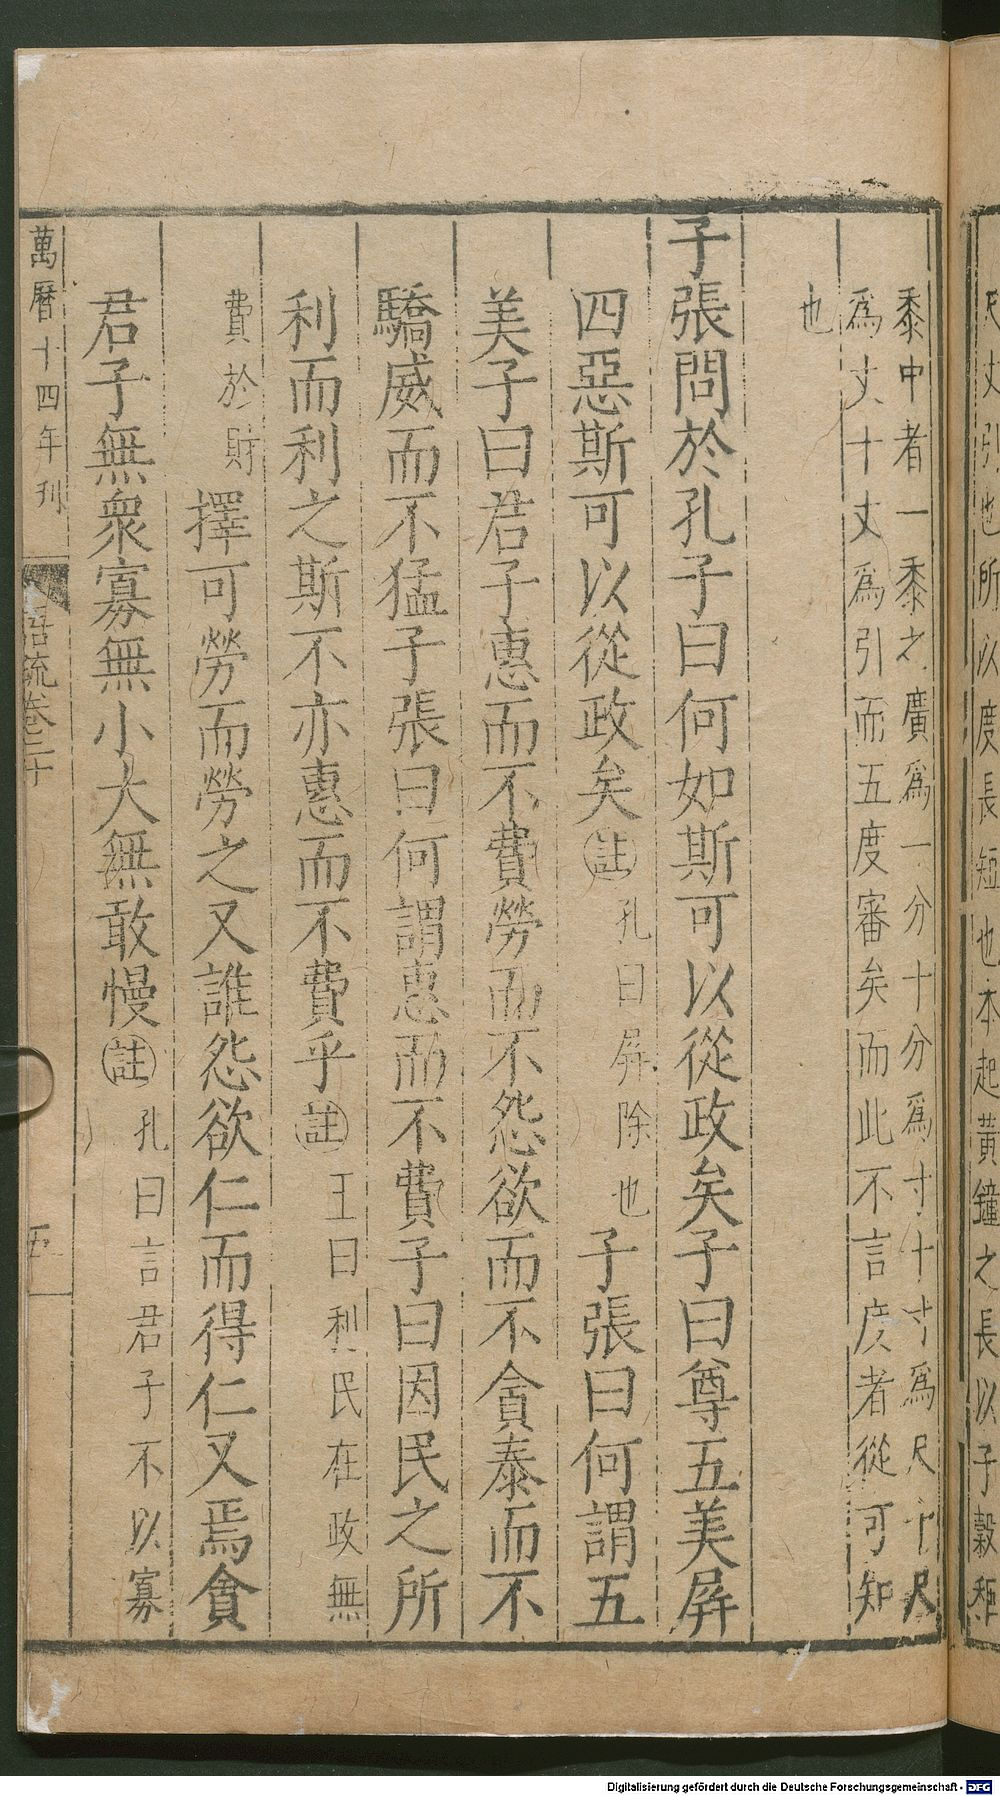 尺丈引也所以度長短也本起黃鐘之長以子穀秬
黍中者一黍之廣爲一分十分爲寸十寸爲尺十尺
爲丈十丈爲引而五度審矣而此不言度者從可知
也
子張問於孔子曰何如斯可以從政矣子曰尊五美屏
四惡斯可以從政矣註孔曰屏除也子張曰何謂五
美子曰君子惠而不費勞而不怨欲而不貪泰而不
驕威而不猛子張曰何謂惠而不費子曰因民之所
利而利之斯不亦惠而不費乎註王曰利民在政無
費於財擇可勞而勞之又誰怨欲仁而得仁又焉貪
君子無衆寡無小大無敢慢註孔曰言君子不以寡
萬曆十四年刋
流卷二十
五
Digitalisierung gefördert durch die Deutsche Forschungsgemeinschaft - DFG